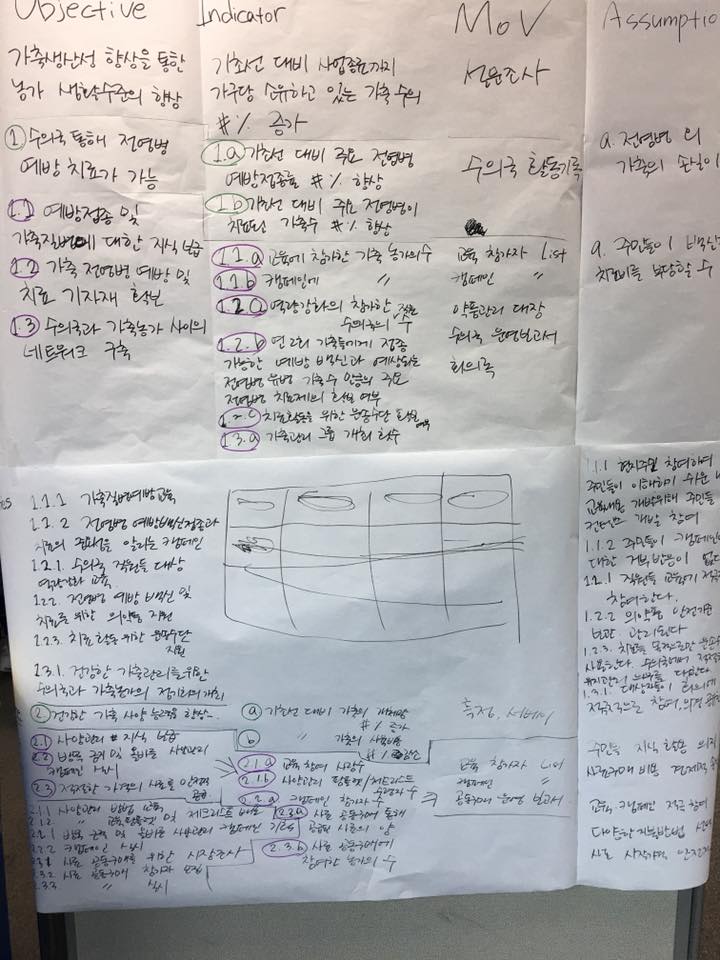 Objective
Indicator
MoV
Assumptio
가축생산성 향상을 통한
농가 생활수준의 향상
기초선 대비 사업종료까지
가구당 소유하고 있는 가축 수의
#% 증가
설문조사
① 수의국 통해 전염병
예방 치료가 가능
1.a 기초선 대비 주요 전염병
예방접종률 #% 향상
1.b 기초선 대비 주요 전염병이
치료된 가축수 #% 향상
수의국 활동기록
a. 전염병 외
가축의 손실이
1.1 예방접종 및
가축질병에 대한 지식 보급
1.2 가축 전염병 예방 및
치료 기자재 확보
1.3 수의국과 가축농가 사이의
네트워크 구축
1.1.a 교육에 참가한 가축 농가의 수
1.1.b 캠페인에 〃
1.2.a 역량강화의 참가한
수의국의 수
1.2.b 연 2회 가축들에게 접종
가능한 예방 백신과 예상되는
전염병 유병 가축수 만큼의 주요
전염병 치료제의 확보 여부
1.2.c 치료활동을 위한 운송수단 확보
여부
1.3.a 가축관리 그룹 개최 횟수
교육 참가자 List
캠페인 〃
약품관리 대장
수의국 운영보고서
회의록
a. 주민들이 백신
치료비를 부담할 수
1.1.1 가축질병예방교육
1.1.2 전염병 예방백신접종과
치료의 중요성을 알리는 캠페인
1.2.1. 수의국 직원들 대상
역량강화 교육
1.2.2. 전염병 예방 백신 및
치료를 위한 의약품 지원
1.2.3. 치료 활동 위한 운송수단
지원
1.3.1. 건강한 가축관리를 위한
수의국과 가축농가의 정기회의 개최
1.1.1 현지주민 참여하여
주민들이 이해하기 쉬운
교육내용 개발위해 주민들
컨텐츠 개발 참여
1.1.2 주민들이 캠페인에
대한 거부반응이 없다
1.2.1 직원들 교육에 적극
참여한다.
1.2.2 의약품 안전기준
보관. 관리된다
1.2.3. 치료를 목적으로만 운송수
사용한다. 수의국에서 적절
유지관리 노력을 다한다.
1.3.1. 대상자들이 회의에
적극적으로 참여, 의견
② 건강한 가축 사양 능력을 향상
ⓐ 기초선 대비 가축의
#% 증가
ⓑ 〃 가축의
#% 감소
측정, 서베이
2.1 사양관리 지식 보급
2.2 방목 금지 및 올바른 사양관리
캠페인 실시
2.3 적절한 가격의 사료를 안정적
공급
2.1.a 교육 참여 시장수
2.1.b 사양관리 팜플렛/체크리스트
수령자 수
2.2.a 캠페인 참가자 수
2.3.a 사료 공동구매 통해
공급된 사료의 양
2.3.b 사료 공동구매에
참여한 농가의 수
교육 참가자 List
캠페인 〃
공동구매 운영 보고서
주민들 지식 활용 의지
사료구매 비용 경제적
교육, 캠페인 적극 참여
다양한
사료 시장가격 안정적
2.1.1 사양관리 방법 교육
2.1.2 〃 교육팜플렛 및 체크리스트 배포
2.2.1 방목 근절 및 올바른 사양관리 캠페인 기획
2.2.2 캠페인 실시
2.3.1 사료 공동구매를 위한 시장조사
2.3.2 사료 공동구매 참가자 모집
2.3.3 〃 실시